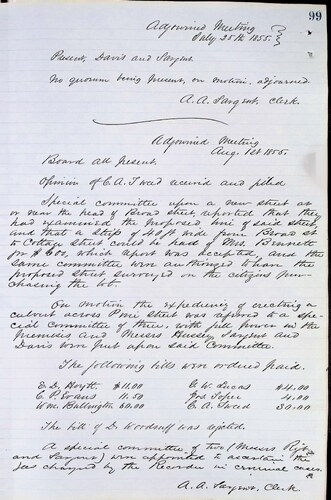 99
Adjourned Meeting
July 25th 1855.
Present, Davis and Sargent.
No quorum being present, on motion, adjourned.
A. A. Sargent, Clerk.
Adjourned Meeting
Aug. 1st 1855.
Board all present.
Opinion of C. A. received and filed
Special committee upon a new street at
or near the head of Broad street, reported that they
had examined the proposed line of said street
and that a strip of 40 ft wide from Broad st
to Cottage street could be had of Mrs. Bennett
for $600, which report was accepted, and the
same committee were authorized to have the
proposed street surveyed on the citizens pur-
chasing the lot.
On motion the expediency of erecting a
culvert across Pine street was referred to a spe-
cial committee of three, with full power in the
premises and Messrs Hussey, Sargent and
Davis were put upon said Committee.
The following bills were ordered paid.
E. D. $11.00 C. W. Lucas $4.00
C. P. Evans 11.50 Jos. 4.00
Wm Bullington 60.00 C. A. 30.00
The bill of D. Woodruff rejected.
A special committee of two (Messrs
and Sargent) were appointed to ascertain the
fees charged by the Recorder in criminal cases.
A. A. Sargent, Clerk